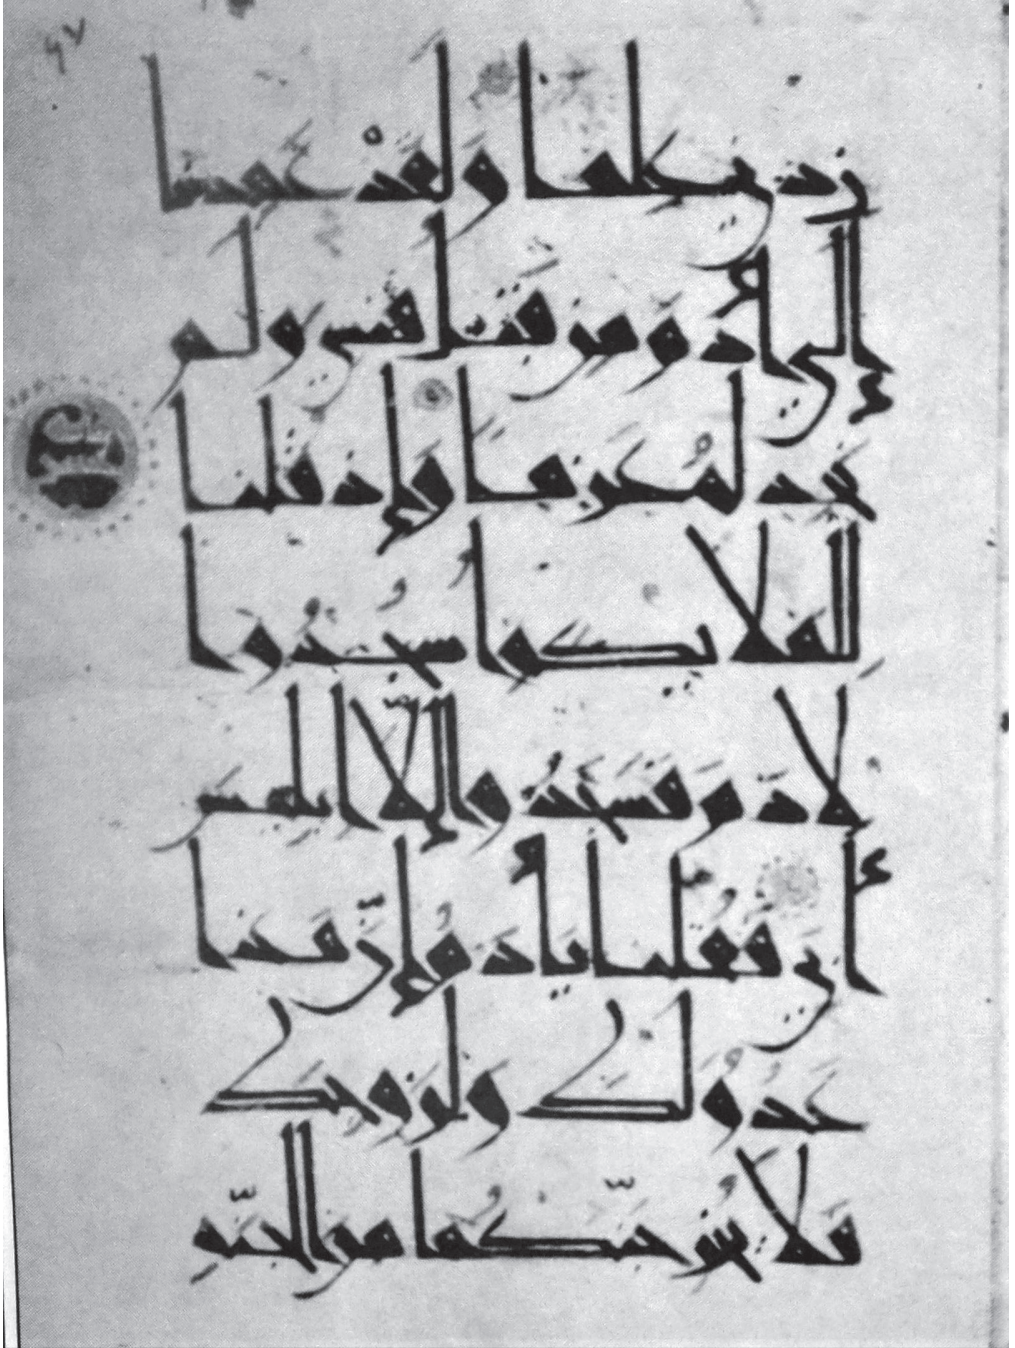 زدني علما ولقد عهدنا
إلى أدم من قبل فنسي ولم
نجد له عزما وإذ قلنا
للملائكة اسجدوا
لأدم فسجدوا إلا إبليس
أبى فقلنا يأدم إن هذا
عدو لك ولزوجك
فلا يخرجنكما من الجنة